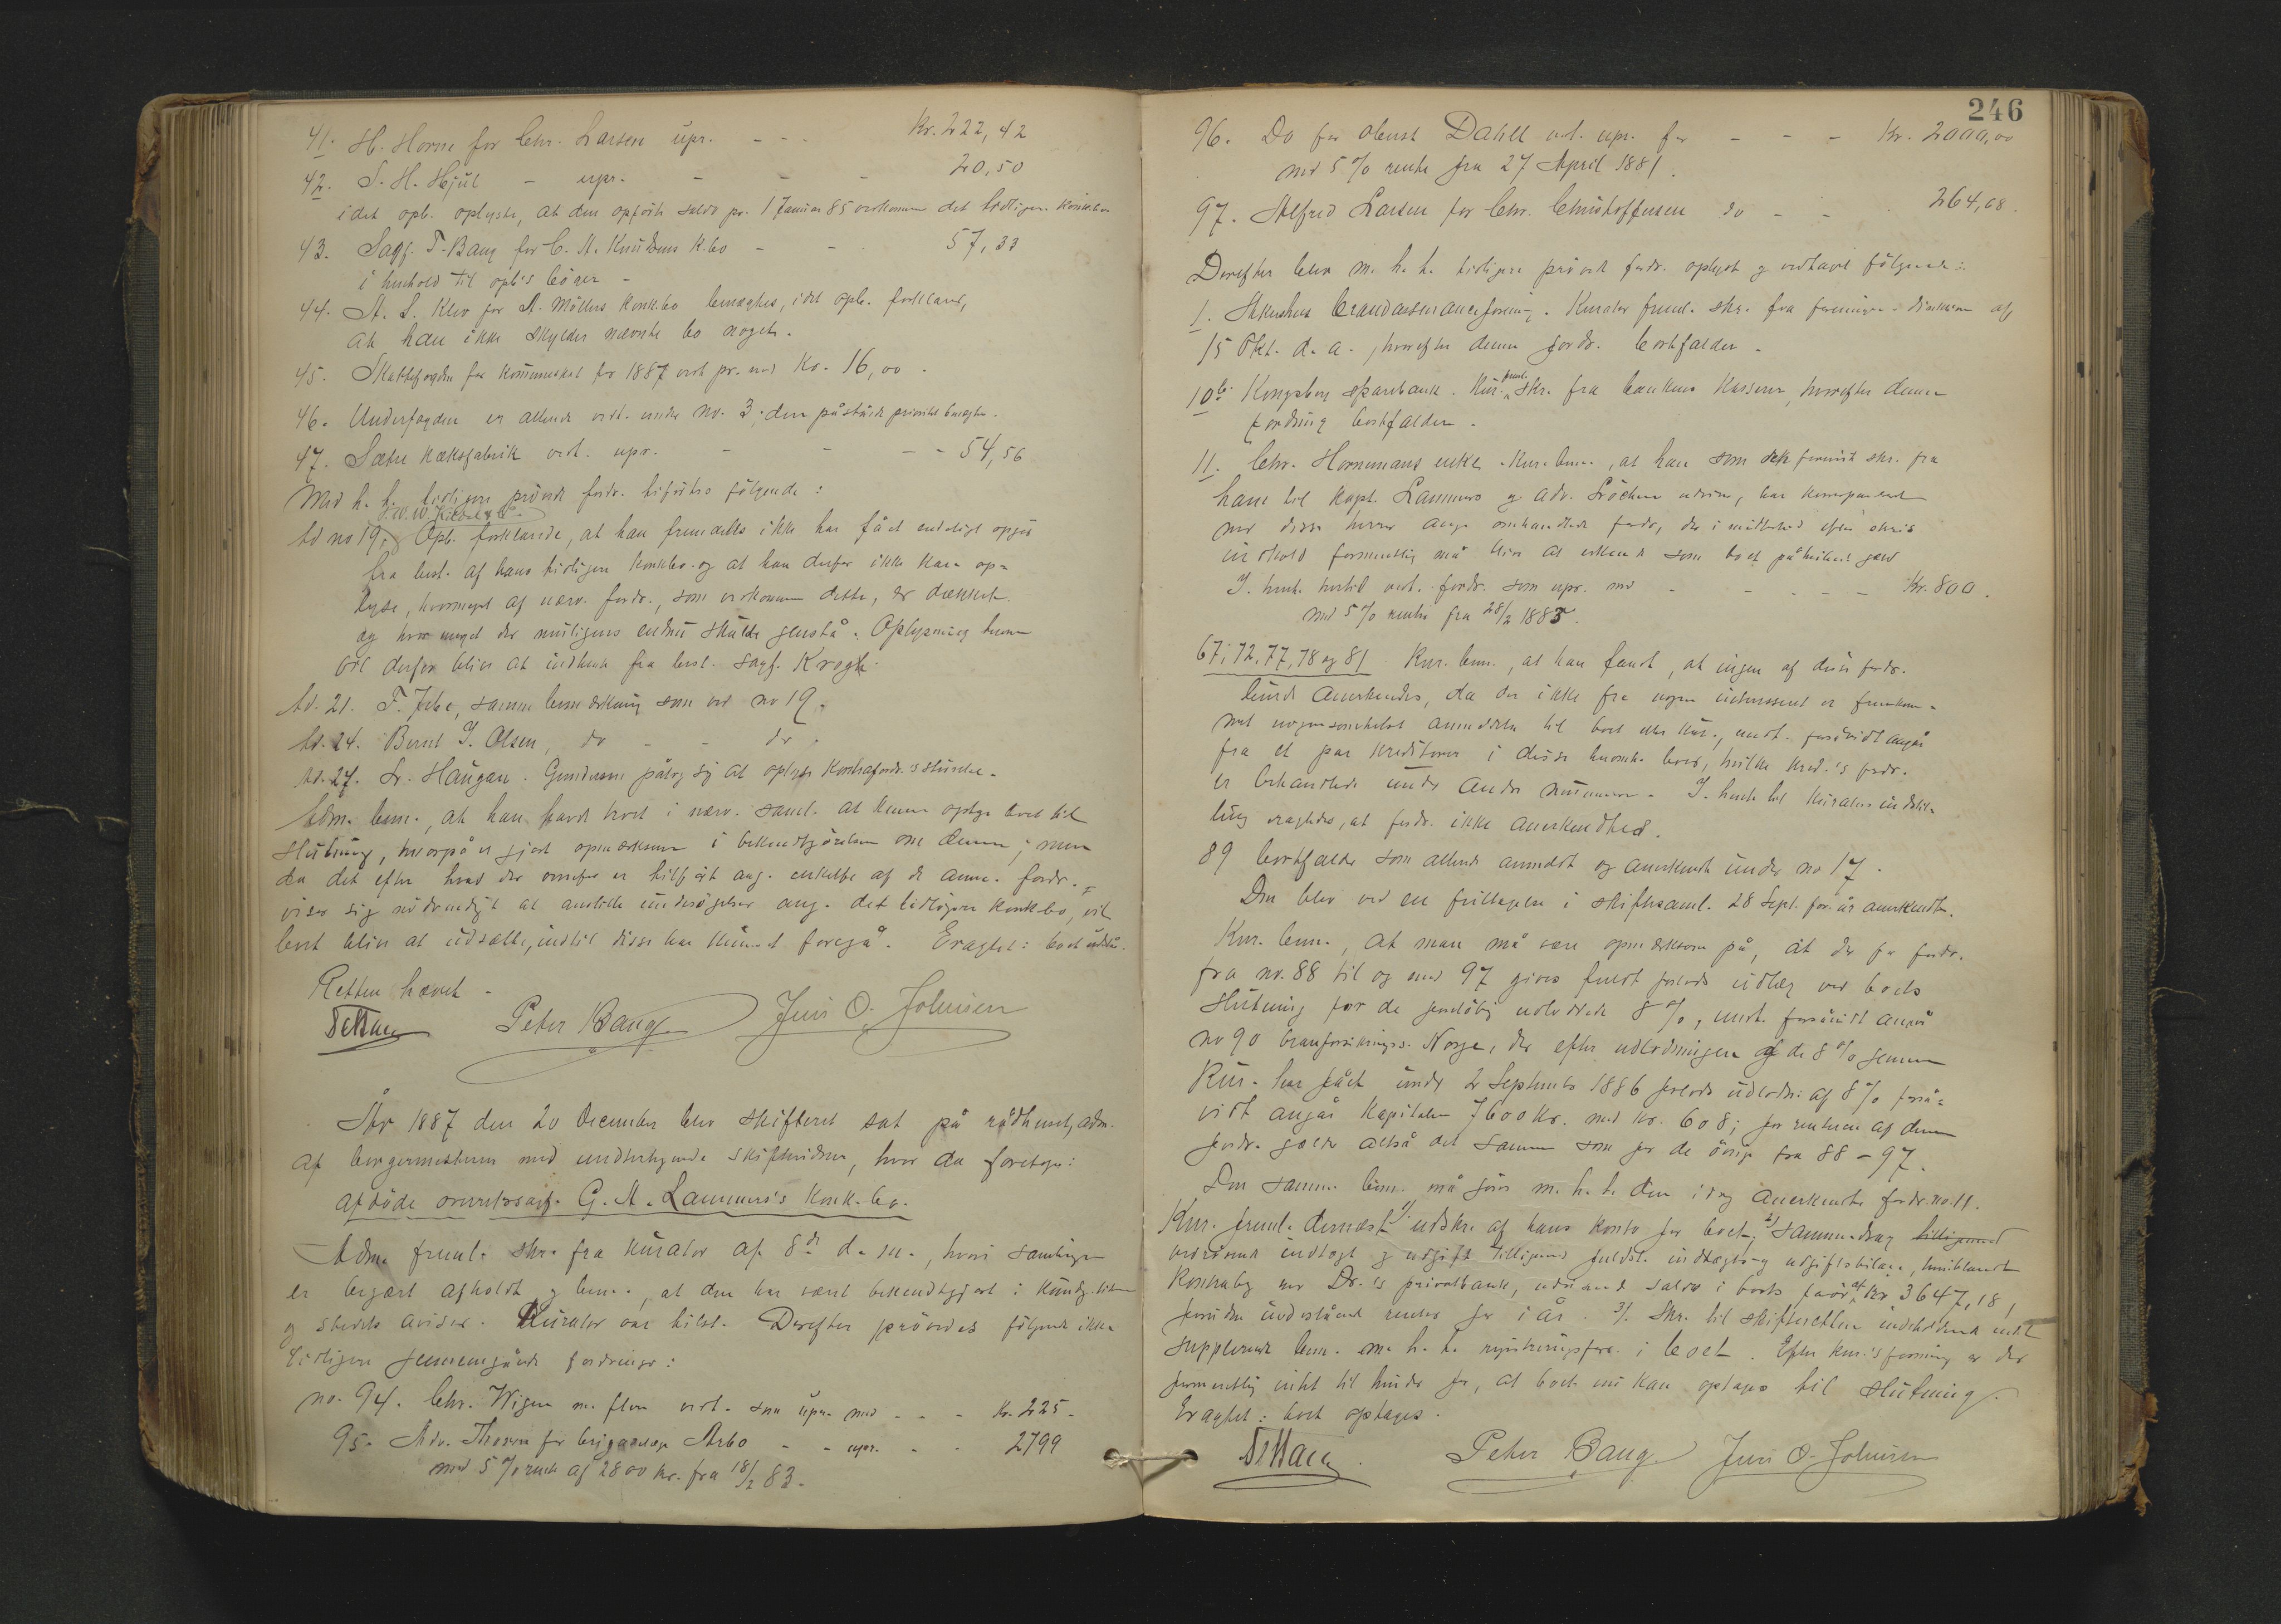 41. H. Horne for Chr. Larsen upr. - - - Kr. 222,42
42. S. H. Hjul - upr. - - - 20,50
idet opb. oplyste, at den opførte saldo pr. 1 Januar 85 vedkommer det tidligere konk.bo
43. Sagf. T. Bang for C. A. Knudsens k.bo - - 57,33
i henhold til opb's bøger -
44. A. S. Klev for A. Møllers konk.bo benægtes, idet opb. forklared,
at han ikke skylder nævnte bo noget.
45. Skattefogden for kommuneskat for 1887 vedt. pr. med Kr. 16,00.
46. Underfogden er allerede vedt. under No. 3; den påståede prioritet benægtes.
47. Sætre kæksfabrik vedt. upr. - - - - 54,56
Med h. t. tidligere prøvede fordr. tilførtes følgende:
J. W. W. Kildal & Co.
Ad no 19. Opb. forklarede, at han fremdeles ikke har fået endeligt opgjør
fra best. af hans tidligere konkbo. og at han derfor ikke kan op=
lyse, hvormeget af nærv. fordr., som vedkommer dette, er dækket
og hvor meget der muligens endnu skulde gjenstå. Oplysning herom
vil derfor blive at indhente fra best. sagf. Krogh.
Ad. 21. F. Jebe, samme bemærkning som ved no 19.
Ad. 24. Bernt J. Olsen, do - - do.
Ad. 27. Fr. Haugan. Gundersen påtog sig at oplyse kontrafordr.'s størrelse.
Adm. bem., at han havde troet i nærv. saml. at kunne optage boet til
slutning, hvorpå er gjort opmærksom i bekendtgjørelsen om denne; men
da det efter hvad der ovenfor er tilført ang. enkelte af de anm. fordr.,
viser sig nødvendigt at anstille undersøgelser ang. det tidligere konkbo, vil
boet blive at udsætte, indtil disse har kunnet foregå. Eragtet: boet udstår.
Retten hævet -
Peter Bang Jens O. Johnsen
År 1887 den 20 December blev skifteret sat på rådhuset, adm.
af borgermesteren med undertegnede skiftevidner, hvor da foretoges:
afdøde overretssagf. G. A. Lammers's konk.bo.
Adm. freml. skr. fra kurator af 8de d. m., hvori samlingen
er begært afholdt og bem., at den har været bekendtgjort i Kundg.tid.
og stedets aviser. Kurator var tilst. Derefter prøvedes følgende ikke
tidligere gennemgåede fordringer:
no. 94. Chr. Wigen m. flere vedt. som upr. med - - - Kr. 225.
95. Adv. Thoresen for brigadelæge Arbo - - upr. - - 2799
med 5 % rente af 2800 kr. fra 18/2 83.
246
96. Do for oberst Dahll vedt. upr. for - - - Kr. 2000,00
med 5 % rente fra 27 April 1881.
97. Alfred Larsen for Chr. Christoffersen do - - 264,68.
Derefter blev m. h. t. tidligere prøvede fordr. oplyst og vedtaget følgende:
1. Akershus brandassuranceforening. Kurator freml. skr. fra foreningens direktion af
15 Okt. d. a., hvorefter denne fordr. bortfalder.
10b. Kongsberg sparebank. Kur. freml. skr. fra bankens kasserer, hvorefter denne
fordring bortfalder.
11. Chr. Hornemans enke. Kur. bem., at han som skr. fra
ham til kapt. Lammers og adv. udviser, har konfereret
med disse herrer ang. omhandlede fordr., der i medhold af skr.'s
indhold formentlig må blive at erkende som boet påhvilende gæld
I henh. hertil vedt. fordr. som upr. med - - - - Kr. 800.
med 5 % rente fra 28/2 1885.
67, 72, 77, 78 og 81. Kur. bem., at han fandt, at ingen af disse fordr.
burde anerkendes, da der ikke fra nogen interesseret er fremkom=
met nogensomhelst anmeldelse til boet eller kur., undt. forsåvidt angår
fra et par kreditorer i disse konk. boer, hvilke kred.'s fordr.
er behandlede under andre nummere. I henh. til kurators indstil=
ling eragtedes, at fordr. ikke anerkendtes.
89 bortfalder som allerede anmeldt og anerkendt under no 17.
Den blev ved en feiltagelse i skiftesaml. 28 Sept. for. år anerkendt.
Kur. bem., at man må være opmærksom på, at der for fordr.
fra no. 88 til og med 97 gives fuldt forlods udlæg ved boets
slutning for de foreløbig udloddede 8 %, undt. forsåvidt angår
no 90 brandforsikringss. Norge, der efter udlodningen af de 8 % gennem
Kur. har fået under 2 September 1886 forlods udlodn. af 8 % forså=
vidt angår kapitalen 7600 kr. med kr. 608; for renterne af denne
fordr. gælder altså det samme som for de øvrige fra 88 - 97.
Den samme bem. må gøres m. h. t. den idag anerkendte fordr. no. 11.
Kur. freml. dernæst 1/ udskr. af hans konto for boet, 2/ sammendrag
vedrørende indtægt og udgift tilligemed fuldst. indtægts- og udgiftsbilage, hvoriblandt
kontrabog med Dr.'s privatbank, udvisende saldo i boets favør af kr. 3647,18,
foruden indestående renter for i år. 3/ Skr. til skifteretten indeholdende endel
supplerende bem. m. h. t. registreringsforr. i boet. Efter kur.'s formening er der
formentlig intet til hinder for, at boet nu kan optages til slutning.
Eragtet: boet optages.
Peter Bang. Jens O. Johnsen